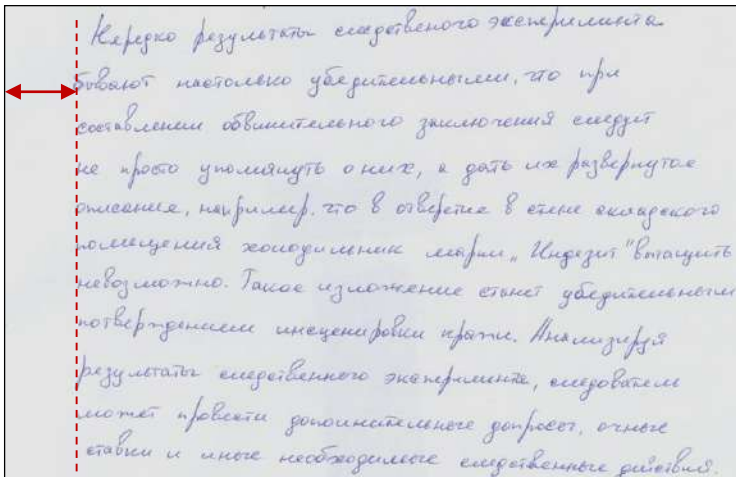 Нередко результаты следственого эксперимента
бывают настолько убедительными, что при
составлении обвинительного заключения следует
не просто упомянуть о них, а дать их развернутое
описание, например. что в отверстие в стене складского
помещения холодильник марки „Индезит" вытащить
невозможно. Такое изложение станет убедительным
потверждением инсценировки кражи. Анализируя
результаты следственного эксперимента, следователь
может провести дополнительные допросы, очные
ставки и иные необходимые следственные действия.